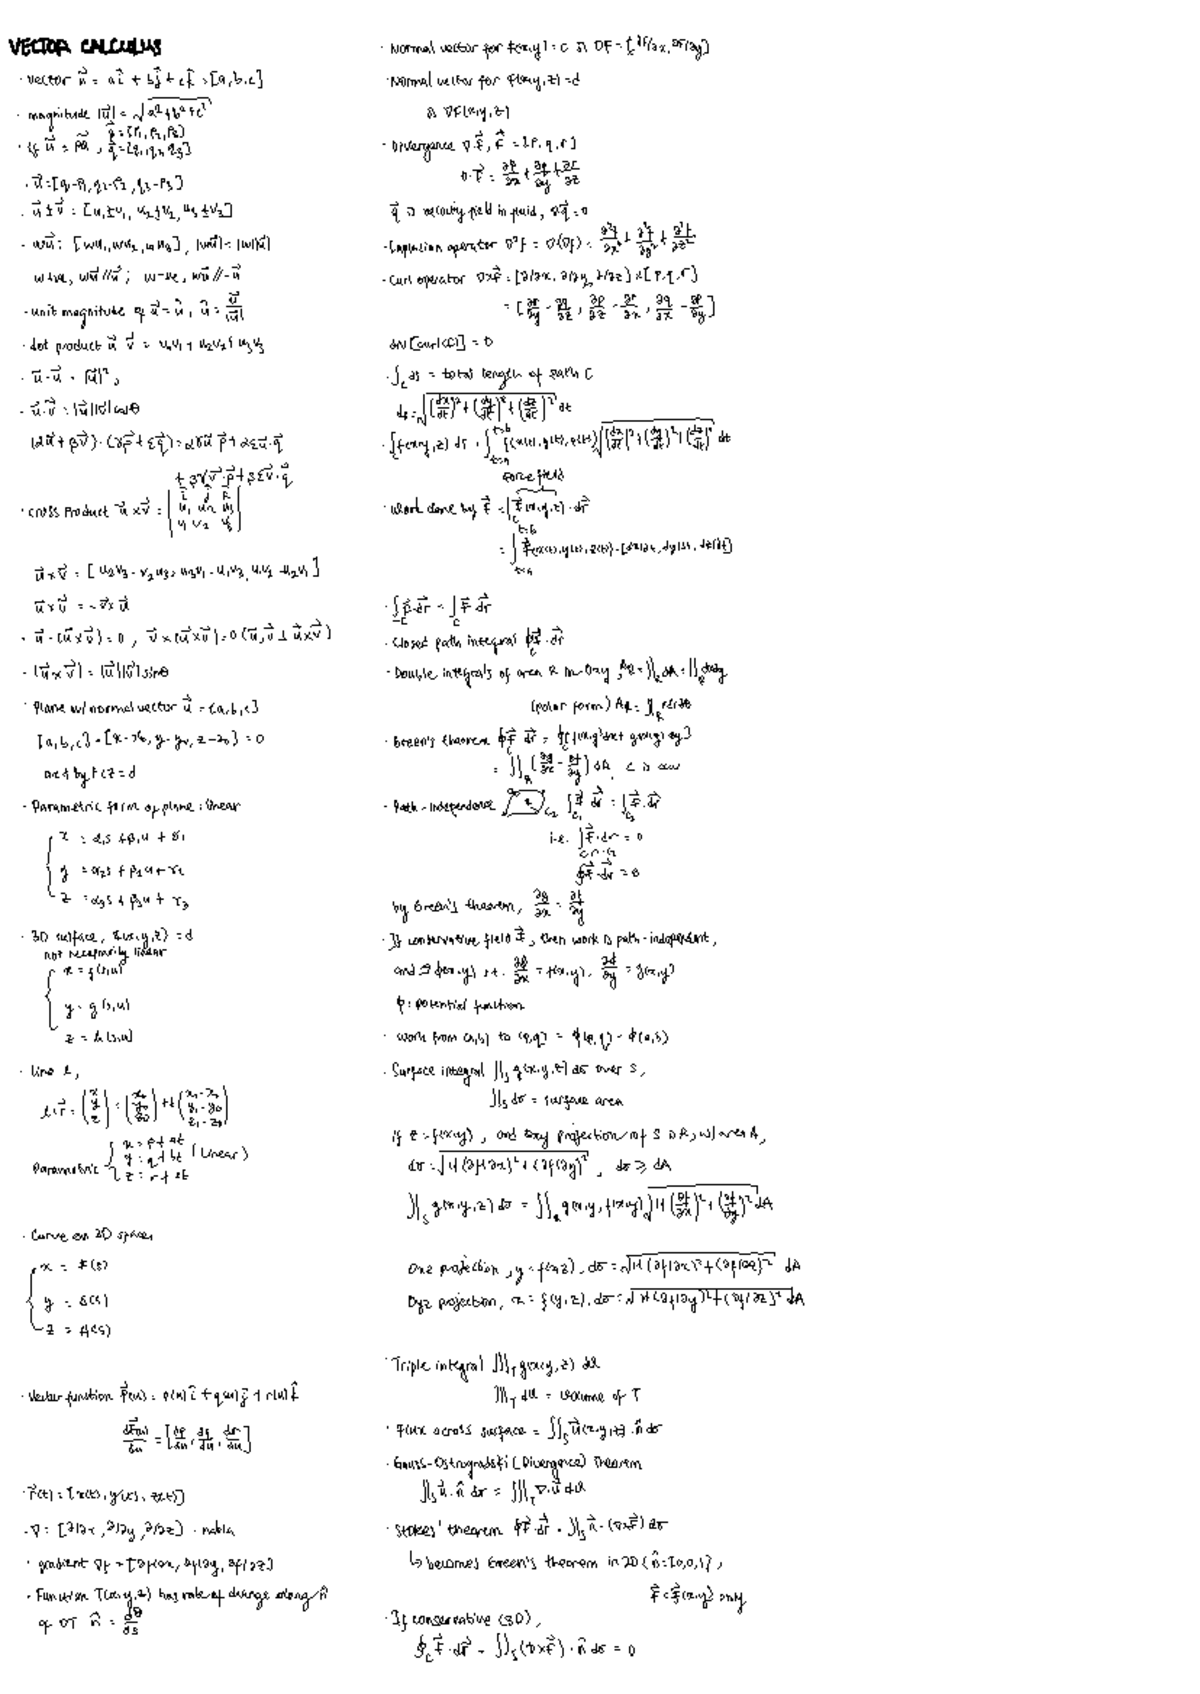 VECTOR CALCULUS
· vector u⃗ = aî + bĵ + ck̂ = [a,b,c]
· magnitude |u⃗| = √(a²+b²+c²)
p⃗ = [p₁,p₂,p₃]
· If u⃗ = pq⃗, q⃗ = [q₁,q₂,q₃]
· u⃗ = [q₁-p₁, q₂-p₂, q₃-p₃]
· u⃗±v⃗ = [u₁±v₁, u₂±v₂, u₃±v₃]
· wu⃗ = [wu₁, wu₂, wu₃], |wu⃗| = |w||u⃗|
w +ve, wu⃗ // u⃗ ; w -ve, wu⃗ // -u⃗
· unit magnitude of u⃗ = û, û = u⃗/|u⃗|
· dot product u⃗ v⃗ = u₁v₁ + u₂v₂ + u₃v₃
· u⃗·u⃗ = |u⃗|²,
· u⃗·v⃗ = |u⃗||v⃗| cosθ
(αu⃗ + βv⃗)·(γp⃗ + εq⃗) = αγu⃗·p⃗ + αεu⃗·q⃗
+ βγv⃗·p⃗ + βεv⃗·q⃗
· Cross Product u⃗×v⃗ = | i j k ; u₁ u₂ u₃ ; v₁ v₂ v₃ |
u⃗×v⃗ = [u₂v₃ - v₂u₃, u₃v₁ - u₁v₃, u₁v₂ - u₂v₁]
u⃗×v⃗ = -v⃗×u⃗
· u⃗·(u⃗×v⃗) = 0, v⃗×(u⃗×v⃗) = 0 (u⃗, v⃗ ⊥ u⃗×v⃗)
· |u⃗×v⃗| = |u⃗||v⃗| sinθ
· Plane w/ normal vector u⃗ = [a,b,c]
[a,b,c]·[x-x₀, y-y₀, z-z₀] = 0
ax+by+cz=d
· Parametric form of plane: linear
{ x = α₁s + β₁u + γ₁
y = α₂s + β₂u + γ₂
z = α₃s + β₃u + γ₃
· 3D surface, (x,y,z) = d
not necessarily linear
{ x = f(s,u)
y = g(s,u)
z = h(s,u)
· Line ℓ,
ℓ: r⃗ = (x y z) = (x₀ y₀ z₀) + t (x₁-x₀ y₁-y₀ z₁-z₀)
Parametric { x = p + at
y = q + bt (Linear)
z = r + ct
· Curve on 3D space,
{ x = F(s)
y = G(s)
z = H(s)
· Vector function F⃗(u) = p(u)î + q(u)ĵ + r(u)k̂
dF⃗(u)/du = [dp/du, dq/du, dr/du]
· r⃗(t) = [x(t), y(t), z(t)]
· ∇ = [∂/∂x, ∂/∂y, ∂/∂z] · nabla
· gradient ∇f = [∂f/∂x, ∂f/∂y, ∂f/∂z]
· Function T(x,y,z) has rate of change along n̂
of ∇T n̂ =
· Normal vector for f(x,y) = c is ∇F = [∂F/∂x, ∂F/∂y]
· Normal vector for F(x,y,z) = d
is ∇F(x,y,z)
· Divergence ∇·F⃗, F⃗ = [p,q,r]
∇·F⃗ = ∂p/∂x + ∂q/∂y + ∂r/∂z
q⃗ is velocity field in fluid, ∇q⃗ = 0
· Laplacian operator ∇²f = ∇(∇f) = ∂²f/∂x² + ∂²f/∂y² + ∂²f/∂z²
· Curl operator ∇×F⃗ = [∂/∂x, ∂/∂y, ∂/∂z] × [p,q,r]
= [∂r/∂y - ∂q/∂z, ∂p/∂z - ∂r/∂x, ∂q/∂x - ∂p/∂y]
div [curl(F)] = 0
· ∫_C ds = total length of path C
ds = √((dx/dt)² + (dy/dt)² + (dz/dt)²) dt
· ∫ f(x,y,z) ds = ∫_{t=a}^{t=b} f(x(t),y(t),z(t)) √((dx/dt)² + (dy/dt)² + (dz/dt)²) dt
Force field
· Work done by F⃗ = ∫_C F⃗(x,y,z)·dr⃗
= ∫_{t=a}^{t=b} F⃗(x(t),y(t),z(t))·[dx/dt, dy/dt, dz/dt]
· ∫_{-C} F⃗·dr⃗ = -∫_C F⃗·dr⃗
· Closed path integral ∮_C F⃗·dr⃗
· Double integrals of area R in Oxy, A_R = ∬_R dA = ∬_R dxdy
(polar form) A_R = ∬_R rdrdθ
· Green's theorem ∮_C F⃗ dr⃗ = ∮_C [f(x,y)dx + g(x,y)dy]
= ∬_R (∂g/∂x - ∂f/∂y) dA, C is ccw
· Path-independence R C₂ ∫_{C₁} F⃗ dr⃗ = ∫_{C₂} F⃗·dr⃗
i.e. ∫ F⃗·dr = 0
∮F⃗·dr⃗ = 0
by Green's theorem, ∂g/∂x = ∂f/∂y
· If conservative field F⃗, then work is path-independent,
and ∃ ϕ(x,y) s.t. ∂ϕ/∂x = f(x,y), ∂ϕ/∂y = g(x,y)
ϕ: potential function
· work from (a,b) to (p,q) = ϕ(p,q) - ϕ(a,b)
· Surface integral ∬_S g(x,y,z) dσ over S,
∬_S dσ = surface area
if z = f(x,y), and Oxy projection of S is R, w/ area A,
dσ = √(1+(∂f/∂x)² + (∂f/∂y)²), dσ ≥ dA
∬_S g(x,y,z) dσ = ∬_R g(x,y,f(x,y)) √(1+(∂f/∂x)² + (∂f/∂y)²) dA
Oxz projection, y = f(x,z), dσ = √(1+(∂f/∂x)² + (∂f/∂z)²) dA
Oyz projection, x = f(y,z), dσ = √(1+(∂f/∂y)² + (∂f/∂z)²) dA
· Triple integral ∭_T g(x,y,z) du
∭_T du = volume of T
· Flux across surface = ∬_S u⃗(x,y,z)·n̂ dσ
· Gauss-Ostrogradski (Divergence) Theorem
∬_S u⃗·n̂ dσ = ∭_T ∇·u⃗ du
· Stokes' theorem ∮F⃗·dr⃗ = ∬_S n̂·(∇×F⃗) dσ
↳ becomes Green's theorem in 2D (n̂=[0,0,1],
F⃗ = F⃗(x,y) only
· If conservative (3D),
∮_C F⃗·dr⃗ = ∬_S (∇×F⃗)·n̂ dσ = 0